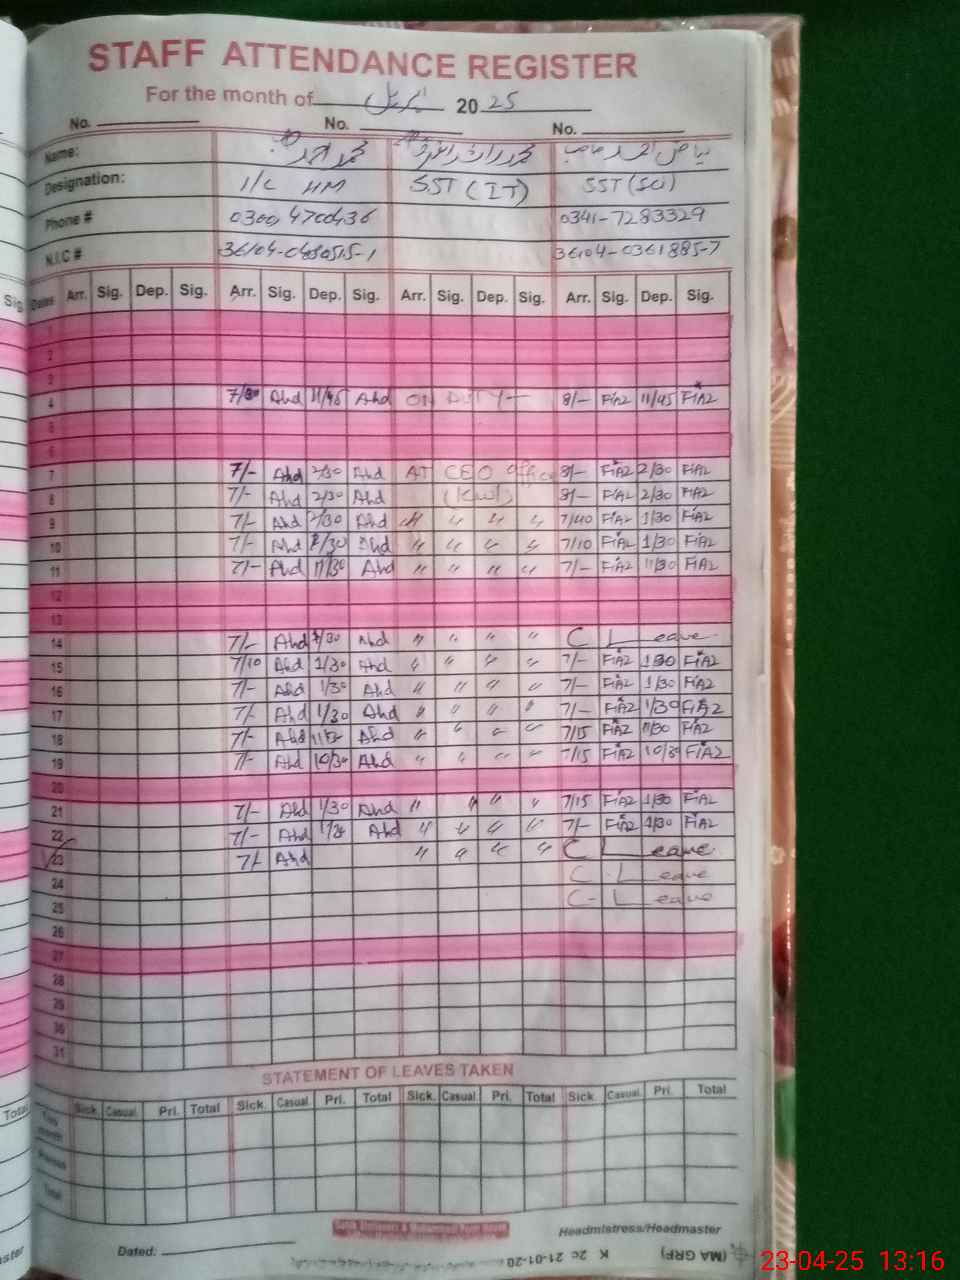 STAFF ATTENDANCE REGISTER
For the month of اپریل 2025
No. No. No.
Name: محمد احمد
Designation: I/C HM SST (IT) SST (Sci)
Phone # 0341-7283329
N.I.C # 36104-0361885-7
Dates Arr. Sig. Dep. Sig. Arr. Sig. Dep. Sig. Arr. Sig. Dep. Sig. Arr. Sig. Dep. Sig.
1
2
3
4 7/30 Ahd 11/45 Ahd ON DUTY 8/- FiAZ 11/45 FiAZ
5
6
7 7/- Ahd 2/30 Ahd AT CEO office 8/- FiAZ 2/30 FiAZ
8 7/- Ahd 2/30 Ahd (Kwl) 8/- FiAZ 2/30 FiAZ
9 7/- Ahd 2/30 Ahd 〃 〃 〃 〃 7/40 FiAZ 1/30 FiAZ
10 7/- Ahd Ahd 〃 〃 〃 〃 7/10 FiAZ 1/30 FiAZ
11 7/- Ahd 11/30 Ahd 〃 〃 〃 〃 7/- FiAZ 11/30 FiAZ
12
13
14 7/- Ahd Ahd 〃 〃 〃 〃 C Leave
15 7/10 Ahd 1/30 Ahd 〃 〃 〃 〃 7/- FiAZ 1/30 FiAZ
16 7/- Ahd 1/30 Ahd 〃 〃 〃 〃 7/- FiAZ 1/30 FiAZ
17 7/- Ahd 1/30 Ahd 〃 〃 〃 〃 7/- FiAZ 1/30 FiAZ
18 7/- Ahd Ahd 〃 〃 〃 〃 7/15 FiAZ 11/30 FiAZ
19 7/- Ahd 10/30 Ahd 〃 〃 〃 〃 7/15 FiAZ 10/30 FiAZ
20
21 7/- Ahd 1/30 Ahd 〃 〃 〃 〃 7/15 FiAZ 1/30 FiAZ
22 7/- Ahd Ahd 〃 〃 〃 〃 7/- FiAZ 1/30 FiAZ
23 7/- Ahd 〃 〃 〃 〃 C Leave
24 C. Leave
25 C- Leave
26
27
28
29
30
31
STATEMENT OF LEAVES TAKEN
Sick. Casual. Pri. Total Sick. Casual. Pri. Total Sick. Casual. Pri. Total Sick. Casual. Pri. Total
This month
Previous
Total
Headmistress/Headmaster
Dated:
(MA GRF) K 20 21-01-20
23-04-25 13:16